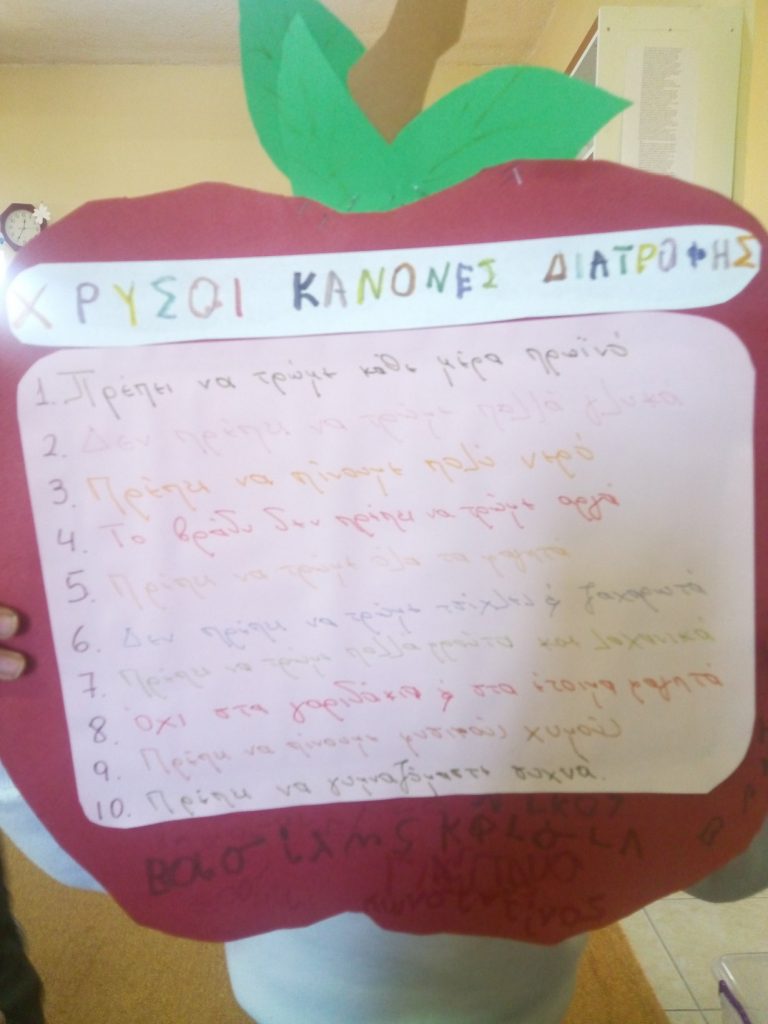 ΧΡΥΣΟΙ ΚΑΝΟΝΕΣ ΔΙΑΤΡΟΦΗΣ
1. Πρέπει να τρώμε κάθε μέρα πρωϊνό
2. Δεν πρέπει να τρώμε πολλά γλυκά
3. Πρέπει να πίνουμε πολύ νερό
4. Το βράδυ δεν πρέπει να τρώμε αργά
5. Πρέπει να τρώμε όλα τα φαγητά
6. Δεν πρέπει να τρώμε τσίχλες ή ζαχαρωτά
7. Πρέπει να τρώμε πολλά φρούτα και λαχανικά
8. Όχι στα γαριδάκια ή στα έτοιμα φαγητά
9. Πρέπει να πίνουμε φυσικούς χυμούς
10. Πρέπει να γυμναζόμαστε συχνά.